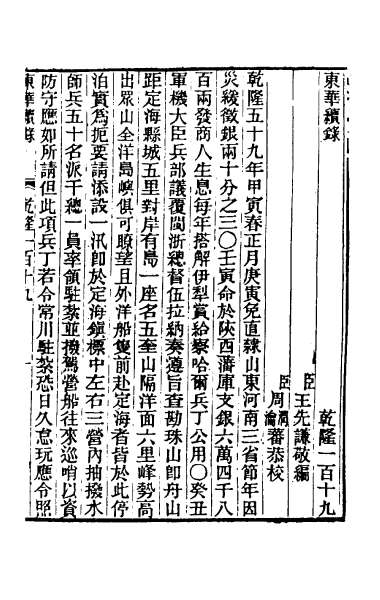 東華續錄
乾隆一百十九
臣王先謙敬編
臣周潤蕃恭校
乾隆五十九年甲寅春正月庚寅免直隸山東河南三省節年因
災緩徵銀兩十分之三〇壬寅命於陝西藩庫支銀六萬四千八
百兩發商人生息每年搭解伊犁賞給察哈爾兵丁公用〇癸丑
軍機大臣兵部議覆閩浙總督伍拉納奏遵旨查勘珠山卽舟山
距定海縣城五里對岸有島一座名五奎山隔洋面六里峰勢高
出眾山全洋島嶼俱可瞭望且外洋船隻前赴定海者皆於此停
泊實為扼要請添設一汛卽於定海鎮標中左右三營內抽撥水
師兵五十名派千總一員率領駐紮並機駕營船往來巡哨以資
防守應如所請但此項兵丁若令常川駐紮恐日久怠玩應令照
東華續錄 乾隆一百十九 一